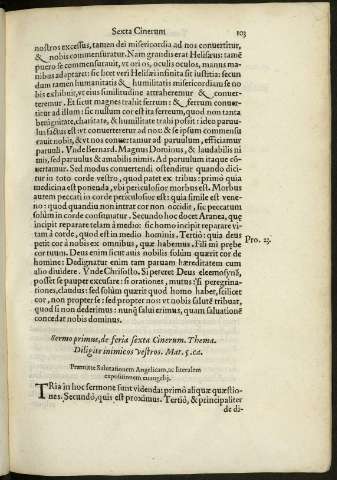 Sexta Cinerum 103
nostros excessus, tamen dei misericordia ad nos conuertitur,
& nobis commensuratur. Nam grandis erat Helisæus: tamẽ
puero se commensurauit, vt ori os, oculis oculos, manus ma-
nibus adaptaret: sic licet veri Helisæi infinita sit iustitia: secun
dum tamen humanitatis & humilitatis misericordiæ se no-
bis exhibuit, vt eius similitudine attraheremur & conuer-
teremur. Et sicut magnes trahit ferrum: & ferrum conuer-
titur ad illum: sic nullum cor est ita ferreum, quod non tanta
benignitate, charitate, & humilitate trahi possit: ideo paruu-
lus factus est vt conuerteretur ad nos: & se ipsum commensu
rauit nobis, & vt nos conuertamur ad paruulum, efficiamur
paruuli. Vnde Bernard. Magnus Dominus, & laudabilis ni
mis, sed paruulus & amabilis nimis. Ad paruulum itaque cõ-
uertamur. Sed modus conuertendi ostenditur quando dici-
tur in toto corde vestro, quod patet ex tribus: primò quia
medicina est ponenda, vbi periculosior morbus est. Morbus
autem peccati in corde periculosior est: quia simile est vene-
no: quod quandiu non intrat cor non occidit, sic peccatum
solùm in corde consumatur. Secundò hoc docet Aranea, quę
incipit reparare telam à medio: sic homo incipit reparare vi-
tam à corde, quod est in medio hominis. Tertiò: quia deus
petit cor à nobis ex omnibus, quæ habemus. Fili mi prębe
cor tuum. Deus enim sicut auis nobilis solùm quærit cor de
homine: Dedignatur enim tam paruam hæreditatem cum
alio diuidere. Vnde Chrisosto. Si peteret Deus eleemosynã,
posset se pauper excusare: si orationes, mutus: si peregrina-
tiones, claudus: sed solùm quærit quod homo habet, scilicet
cor, non propter se: sed propter nos: vt nobis salutẽ tribuat,
quod si non dederimus: nunq̃ salui erimus, quam saluationẽ
concedat nobis dominus.
Pro. 23.
Sermo primus, de feria sexta Cinerum. Thema.
Diligite inimicos vestros. Mat. 5. ca.
Præmitte Salutationem Angelicam, ac literalem
expositionem euangelij.
TRia in hoc sermone sunt videnda: primò aliquæ quæstio-
nes. Secundò, quis est proximus. Tertiò, & principaliter
de di-